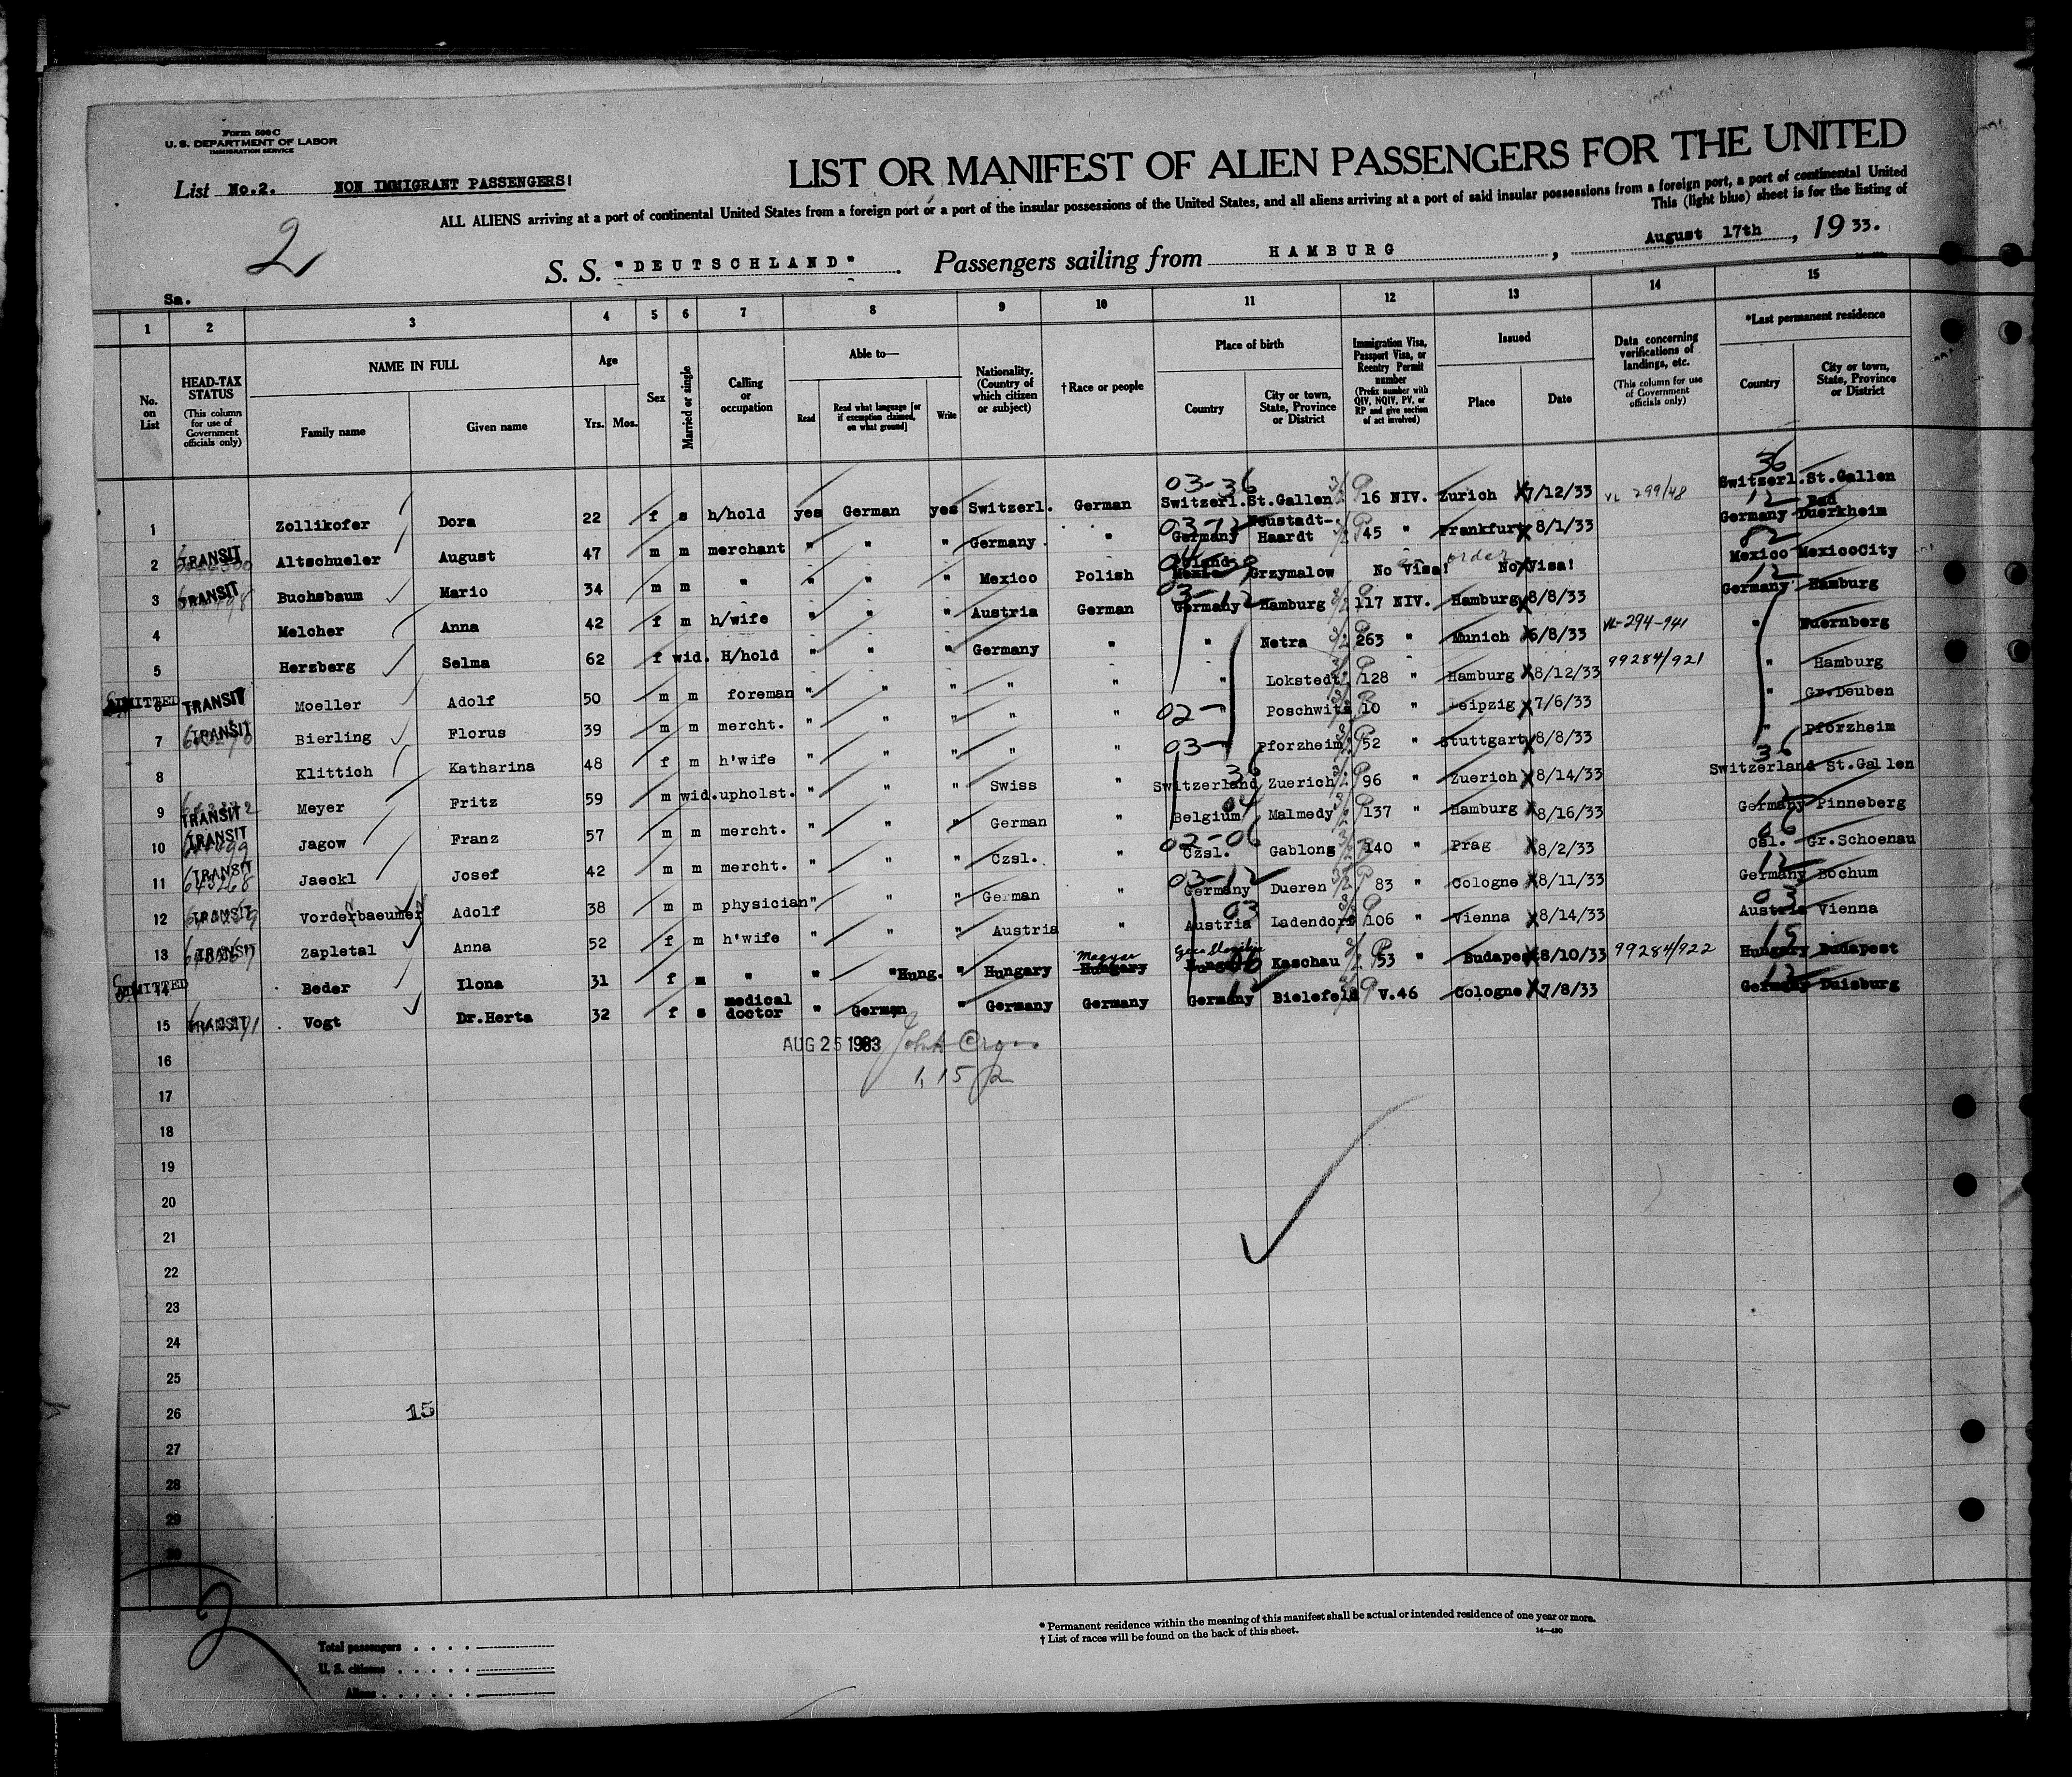 Form 500 C
U. S. DEPARTMENT OF LABOR
IMMIGRATION SERVICE
List No.2. NON IMMIGRANT PASSENGERS!
LIST OR MANIFEST OF ALIEN PASSENGERS FOR THE UNITED
ALL ALIENS arriving at a port of continental United States from a foreign port or a port of the insular possessions of the United States, and all aliens arriving at a port of said insular possessions from a foreign port, a port of continental United
This (light blue) sheet is for the listing of
2
S. S. "DEUTSCHLAND". Passengers sailing from HAMBURG, August 17th, 19 33.
Sa.
1 2 3 4 5 6 7 8 9 10 11 12 13 14 15
No. on List
HEAD-TAX STATUS (This column for use of Government officials only)
NAME IN FULL Family name Given name
Age Yrs. Mos.
Sex
Married or single
Calling or occupation
Able to— Read Read what language [or if exemption claimed, on what ground] Write
Nationality. (Country of which citizen or subject)
†Race or people
Place of birth Country City or town, State, Province or District
Immigration Visa, Passport Visa, or Reentry Permit number (Prefix number with QIV, NQIV, PV, or RP and give section of act involved)
Issued Place Date
Data concerning verifications of landings, etc. (This column for use of Government officials only)
*Last permanent residence Country City or town, State, Province or District
1 Zollikofer Dora 22 f s h/hold yes German yes Switzerl. German 03-36 Switzerl. St.Gallen 16 NIV. Zurich 7/12/33 VL 299/48 36 Switzerl. St.Gallen
2 TRANSIT Altschueler August 47 m m merchant " " " Germany " 03-12 Germany Neustadt-Haardt 45 " Frankfurt 8/1/33 12 Germany Bad Duerkheim
3 TRANSIT Buchsbaum Mario 34 m m " " " " Mexico Polish Poland Grzymalow No Visa! order No Visa! 82 Mexico MexicoCity
4 Melcher Anna 42 f m h/wife " " " Austria German 03-12 Germany Hamburg 117 NIV. Hamburg 8/8/33 12 Germany Hamburg
5 Herzberg Selma 62 f wid. H/hold " " " Germany " " Netra 263 " Munich 6/8/33 VL-294-941 " Nuernberg
ADMITTED 6 TRANSIT Moeller Adolf 50 m m foreman " " " " " " Lokstedt 128 " Hamburg 8/12/33 99284/921 " Hamburg
7 TRANSIT Bierling Florus 39 m m mercht. " " " " " 02- Poschwitz 10 " Leipzig 7/6/33 " Gr.Deuben
8 Klittich Katharina 48 f m h'wife " " " " " 03- Pforzheim 52 " Stuttgart 8/8/33 " Pforzheim
9 TRANSIT Meyer Fritz 59 m wid. upholst. " " " Swiss " 36 Switzerland Zuerich 96 " Zuerich 8/14/33 36 Switzerland St.Gallen
10 TRANSIT Jagow Franz 57 m m mercht. " " " German " 04 Belgium Malmedy 137 " Hamburg 8/16/33 12 Germany Pinneberg
11 TRANSIT 643268 Jaeckl Josef 42 m m mercht. " " " Czsl. " 02-06 Czsl. Gablong 140 " Prag 8/2/33 06 Csl. Gr.Schoenau
12 TRANSIT Vorderbaeumer Adolf 38 m m physician " " " German " 03-12 Germany Dueren 83 " Cologne 8/11/33 12 Germany Bochum
13 TRANSIT Zapletal Anna 52 f m h'wife " " " Austria " 03 Austria Ladendorf 106 " Vienna 8/14/33 03 Austria Vienna
ADMITTED 14 Beder Ilona 31 f m " " "Hung. " Hungary Magyar Hungary Hungary 06 Kaschau 53 " Budapest 8/10/33 99284/922 15 Hungary Budapest
15 TRANSIT Vogt Dr.Herta 32 f s medical doctor " German " Germany Germany 12 Germany Bielefeld V.46 Cologne 7/8/33 12 Germany Duisburg
16 AUG 25 1933
1, 15
17
18
19
20
21
22
23
24
25
26 15
27
28
29
30
2
Total passengers
U. S. citizens
Aliens
* Permanent residence within the meaning of this manifest shall be actual or intended residence of one year or more.
† List of races will be found on the back of this sheet.
14—430